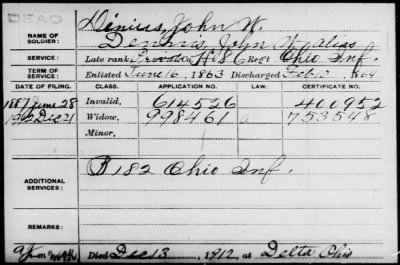 DEAD
Dinius, John W.
NAME OF SOLDIER: Dennis, John W. alias
SERVICE: Late rank, Private H 86 Reg't Ohio Inf.
TERM OF SERVICE: Enlisted June 16, 1863 Discharged Feb 10 1864
DATE OF FILING. CLASS. APPLICATION NO. CERTIFICATE NO.
1887 June 28 Invalid, 614526 400952
1912 Dec 21 Widow, 998461 a 753548
Minor,
ADDITIONAL SERVICES: B 182 Ohio Inf.
REMARKS:
Died Dec 13, 1912, at Delta Ohio